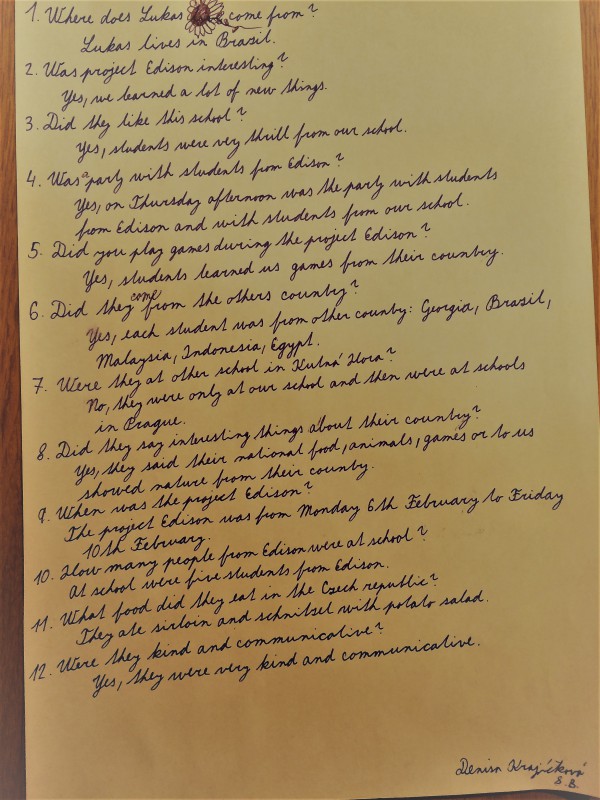 1. Where does Lukas come from?
Lukas lives in Brasil.
2. Was project Edison interesting?
Yes, we learned a lot of new things.
3. Did they like this school?
Yes, students were very thrill from our school.
4. Was a party with students from Edison?
Yes, on Thursday afternoon was the party with students
from Edison and with students from our school.
5. Did you play games during the project Edison?
Yes, students learned us games from their country.
6. Did they come from the others country?
Yes, each student was from other country: Georgia, Brasil,
Malaysia, Indonesia, Egypt.
7. Were they at other school in Kutná Hora?
No, they were only at our school and then were at schools
in Prague.
8. Did they say interesting things about their country?
Yes, they said their national food, animals, games or to us
showed nature from their country.
9. When was the project Edison?
The project Edison was from Monday 6th February to Friday
10th February.
10. How many people from Edison were at school?
At school were five students from Edison.
11. What food did they eat in the Czech republic?
They ate sirloin and schnitzel with potato salad.
12. Were they kind and communicative?
Yes, they were very kind and communicative.
Denisa Krajíčková
8. B.